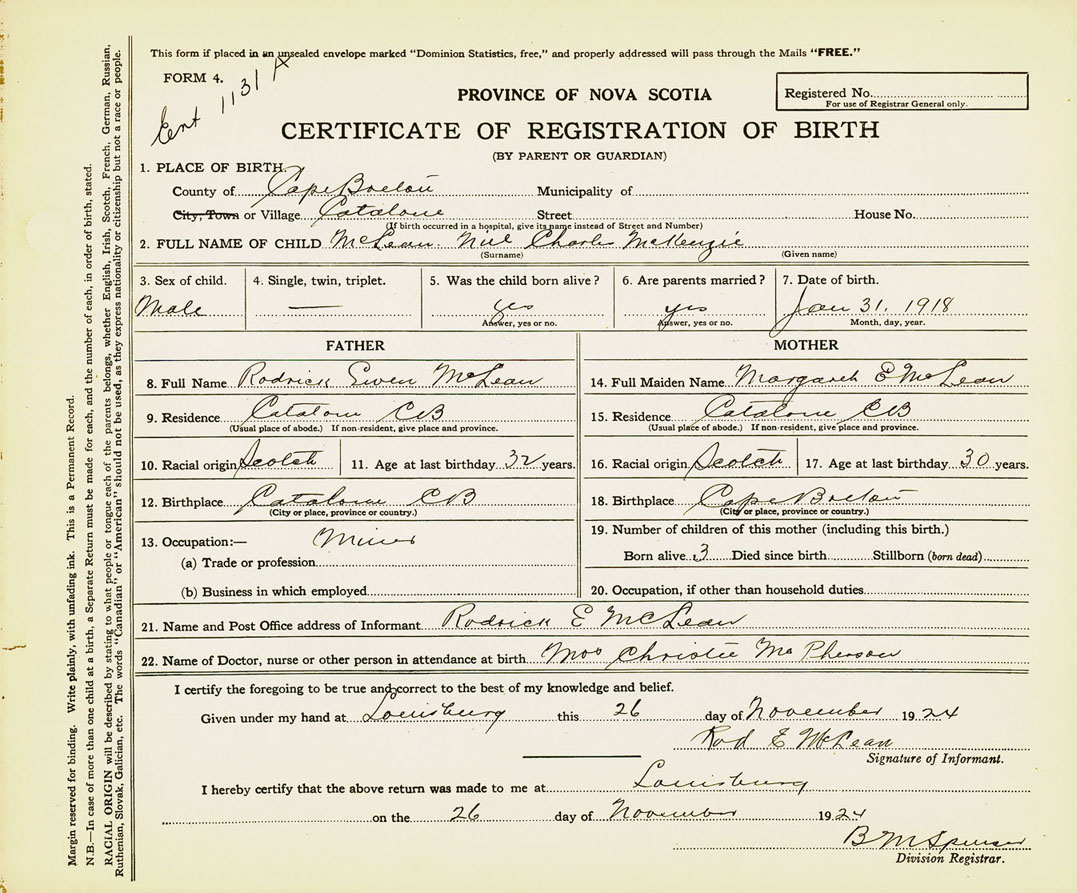 This form if placed in an unsealed envelope marked "Dominion Statistics, free," and properly addressed will pass through the Mails "FREE."
FORM 4.
Ent 1131 A
PROVINCE OF NOVA SCOTIA
Registered No.
For use of Registrar General only.
CERTIFICATE OF REGISTRATION OF BIRTH
(BY PARENT OR GUARDIAN)
1. PLACE OF BIRTH
County of Cape Breton Municipality of
City, Town or Village Catalone Street House No.
(If birth occurred in a hospital, give its name instead of Street and Number)
2. FULL NAME OF CHILD McLean Neil Charles McKenzie
(Surname) (Given name)
3. Sex of child. 4. Single, twin, triplet. 5. Was the child born alive? 6. Are parents married? 7. Date of birth.
Male — yes yes Jan 31, 1918
Answer, yes or no. Answer, yes or no. Month, day, year.
FATHER
8. Full Name Rodrick Ewen McLean
9. Residence Catalone CB
(Usual place of abode.) If non-resident, give place and province.
10. Racial origin Scotch 11. Age at last birthday 32 years.
12. Birthplace Catalone CB
(City or place, province or country.)
13. Occupation:— Miner
(a) Trade or profession
(b) Business in which employed
MOTHER
14. Full Maiden Name Margaret E McLean
15. Residence Catalone CB
(Usual place of abode.) If non-resident, give place and province.
16. Racial origin Scotch 17. Age at last birthday 30 years.
18. Birthplace Cape Breton
(City or place, province or country.)
19. Number of children of this mother (including this birth.)
Born alive 3 Died since birth Stillborn (born dead)
20. Occupation, if other than household duties
21. Name and Post Office address of Informant Rodrick E McLean
22. Name of Doctor, nurse or other person in attendance at birth Mrs Christie McPherson
I certify the foregoing to be true and correct to the best of my knowledge and belief.
Given under my hand at Louisburg this 26 day of November 1924
Rod E McLean
Signature of Informant.
I hereby certify that the above return was made to me at Louisburg
on the 26 day of November 1924
B M Spencer
Division Registrar.
Margin reserved for binding. Write plainly, with unfading ink. This is a Permanent Record.
N.B.—In case of more than one child at a birth, a Separate Return must be made for each, and the number of each, in order of birth, stated.
RACIAL ORIGIN will be described by stating to what people or tongue each of the parents belongs, whether English, Irish, Scotch, French, German, Russian,
Ruthenian, Slovak, Galician, etc. The words "Canadian" or "American" should not be used, as they express nationality or citizenship but not a race or people.